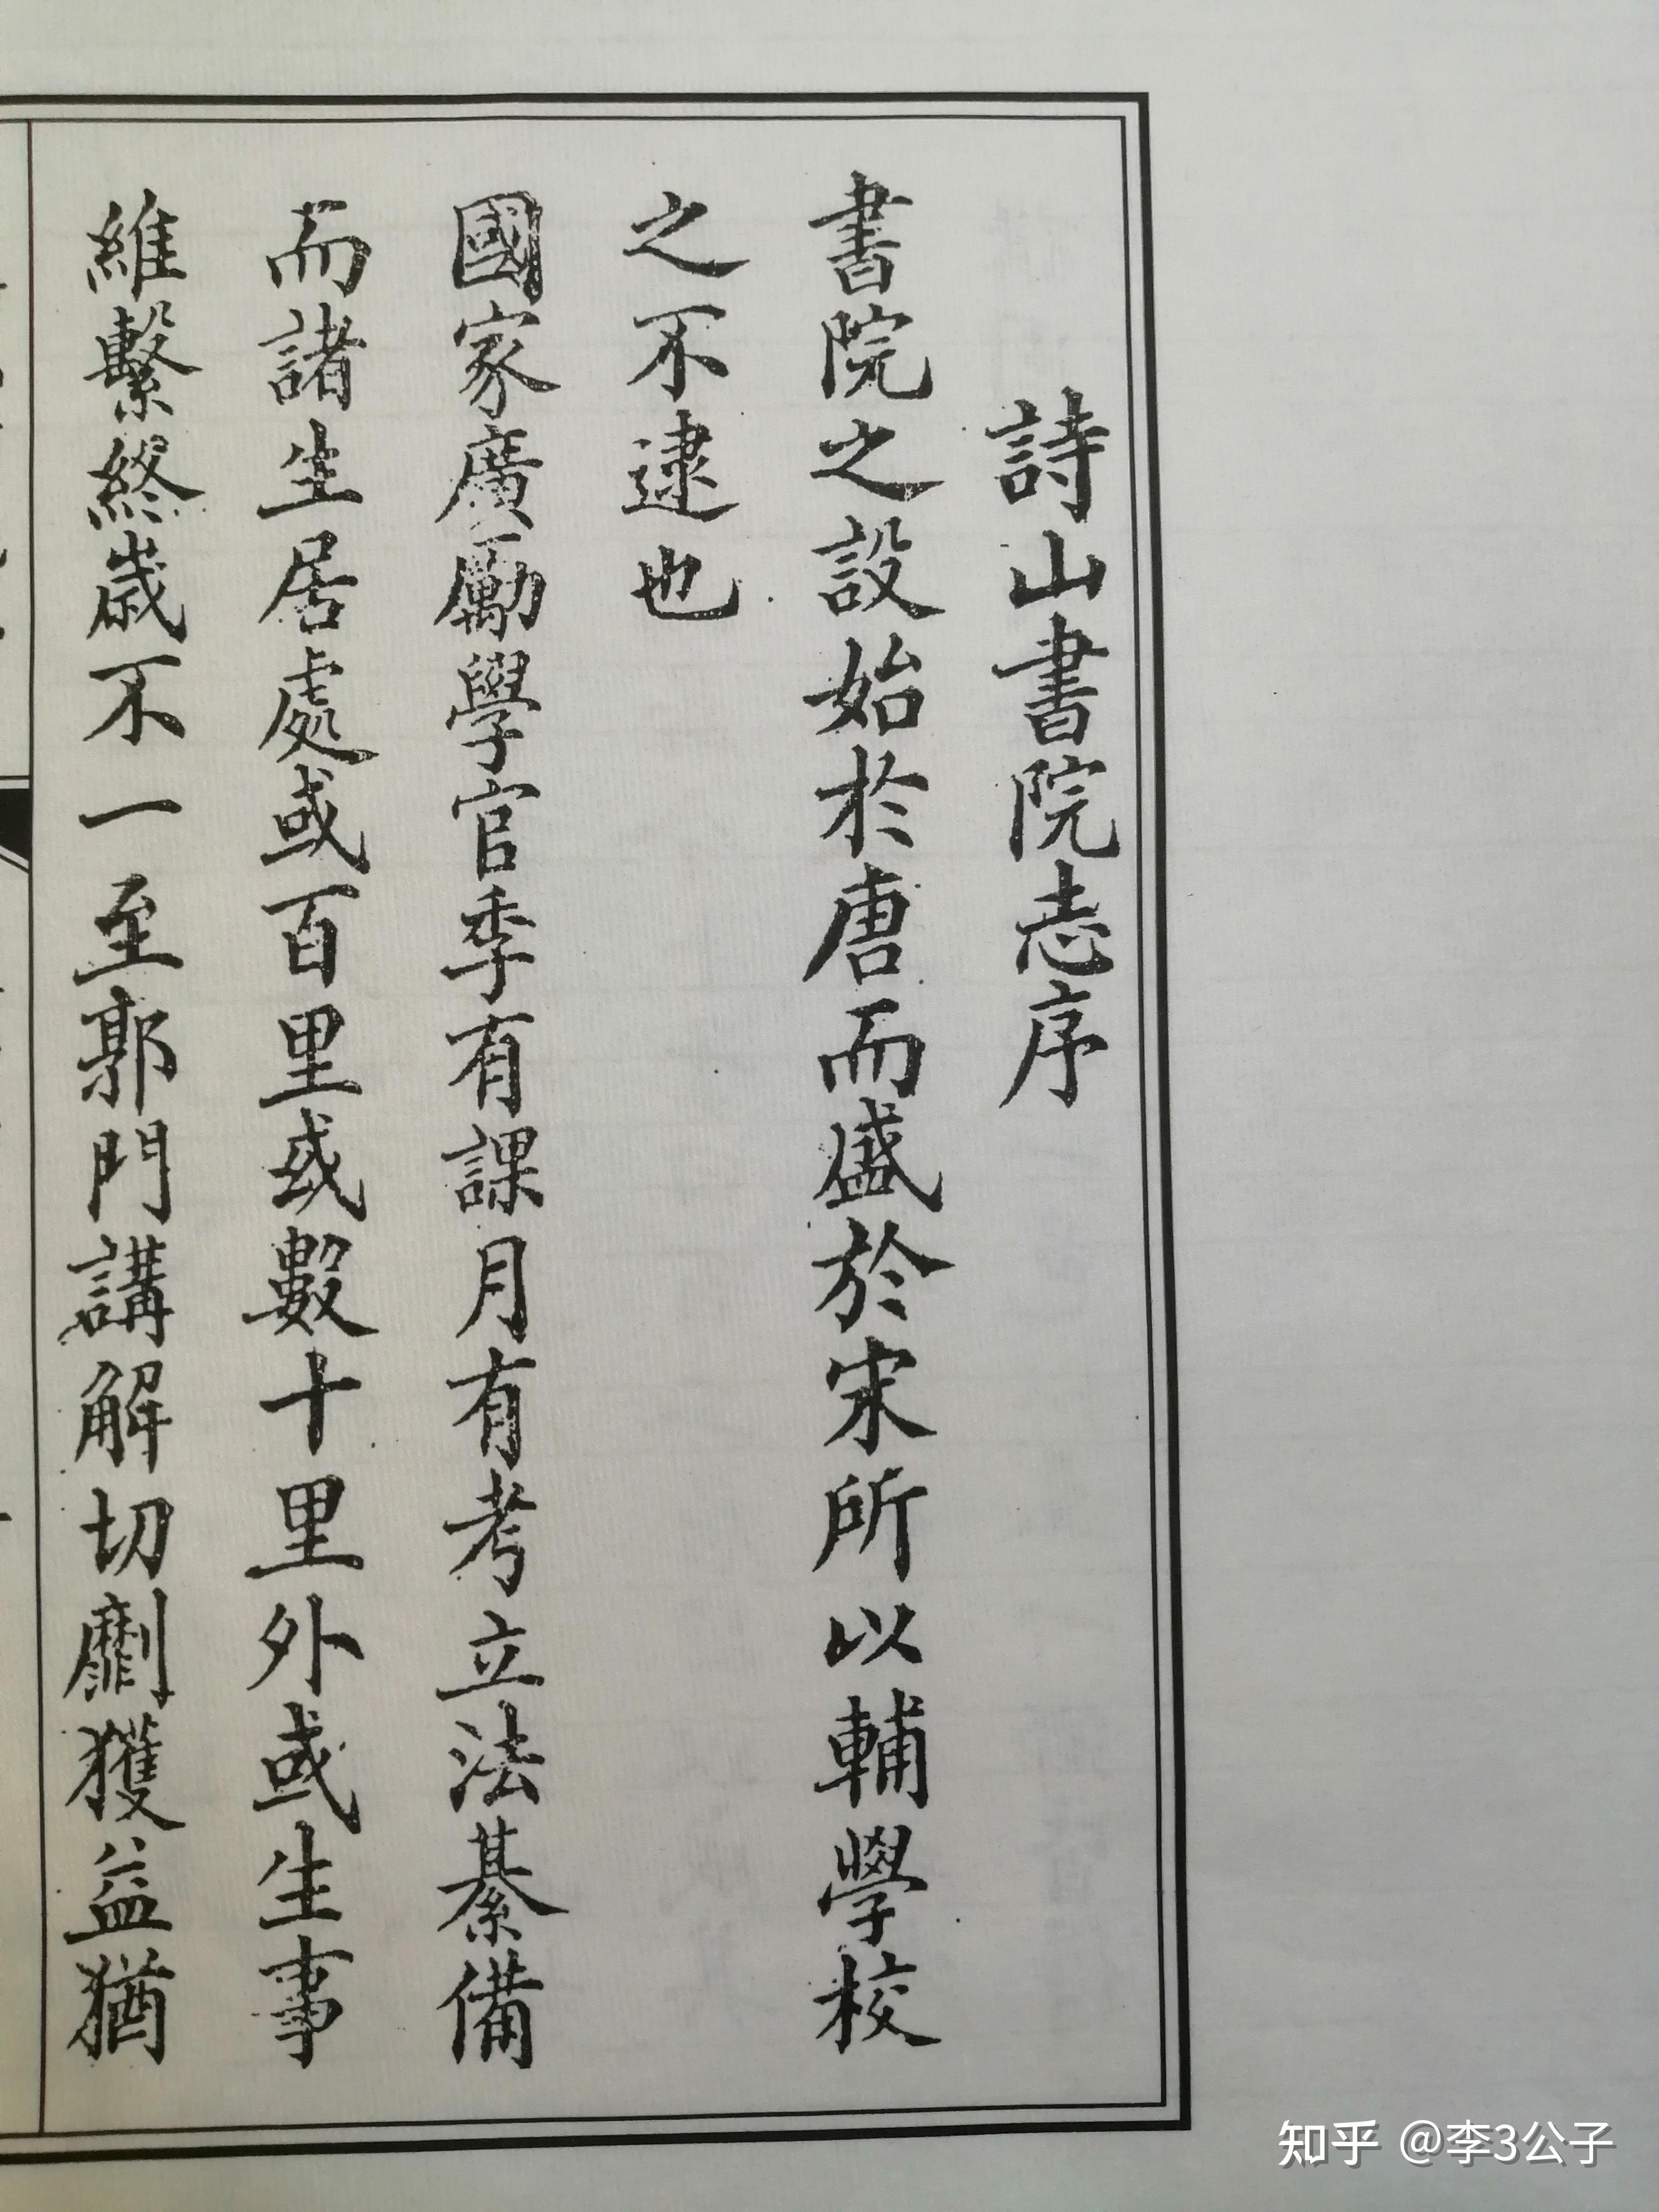 詩山書院志序
書院之設始於唐而盛於宋所以輔學校
之不逮也
國家廣勵學官季有課月有考立法綦備
而諸生居處或百里或數十里外或生事
維繫終歲不一至郭門講解切劘獲益猶
知乎 @李3公子